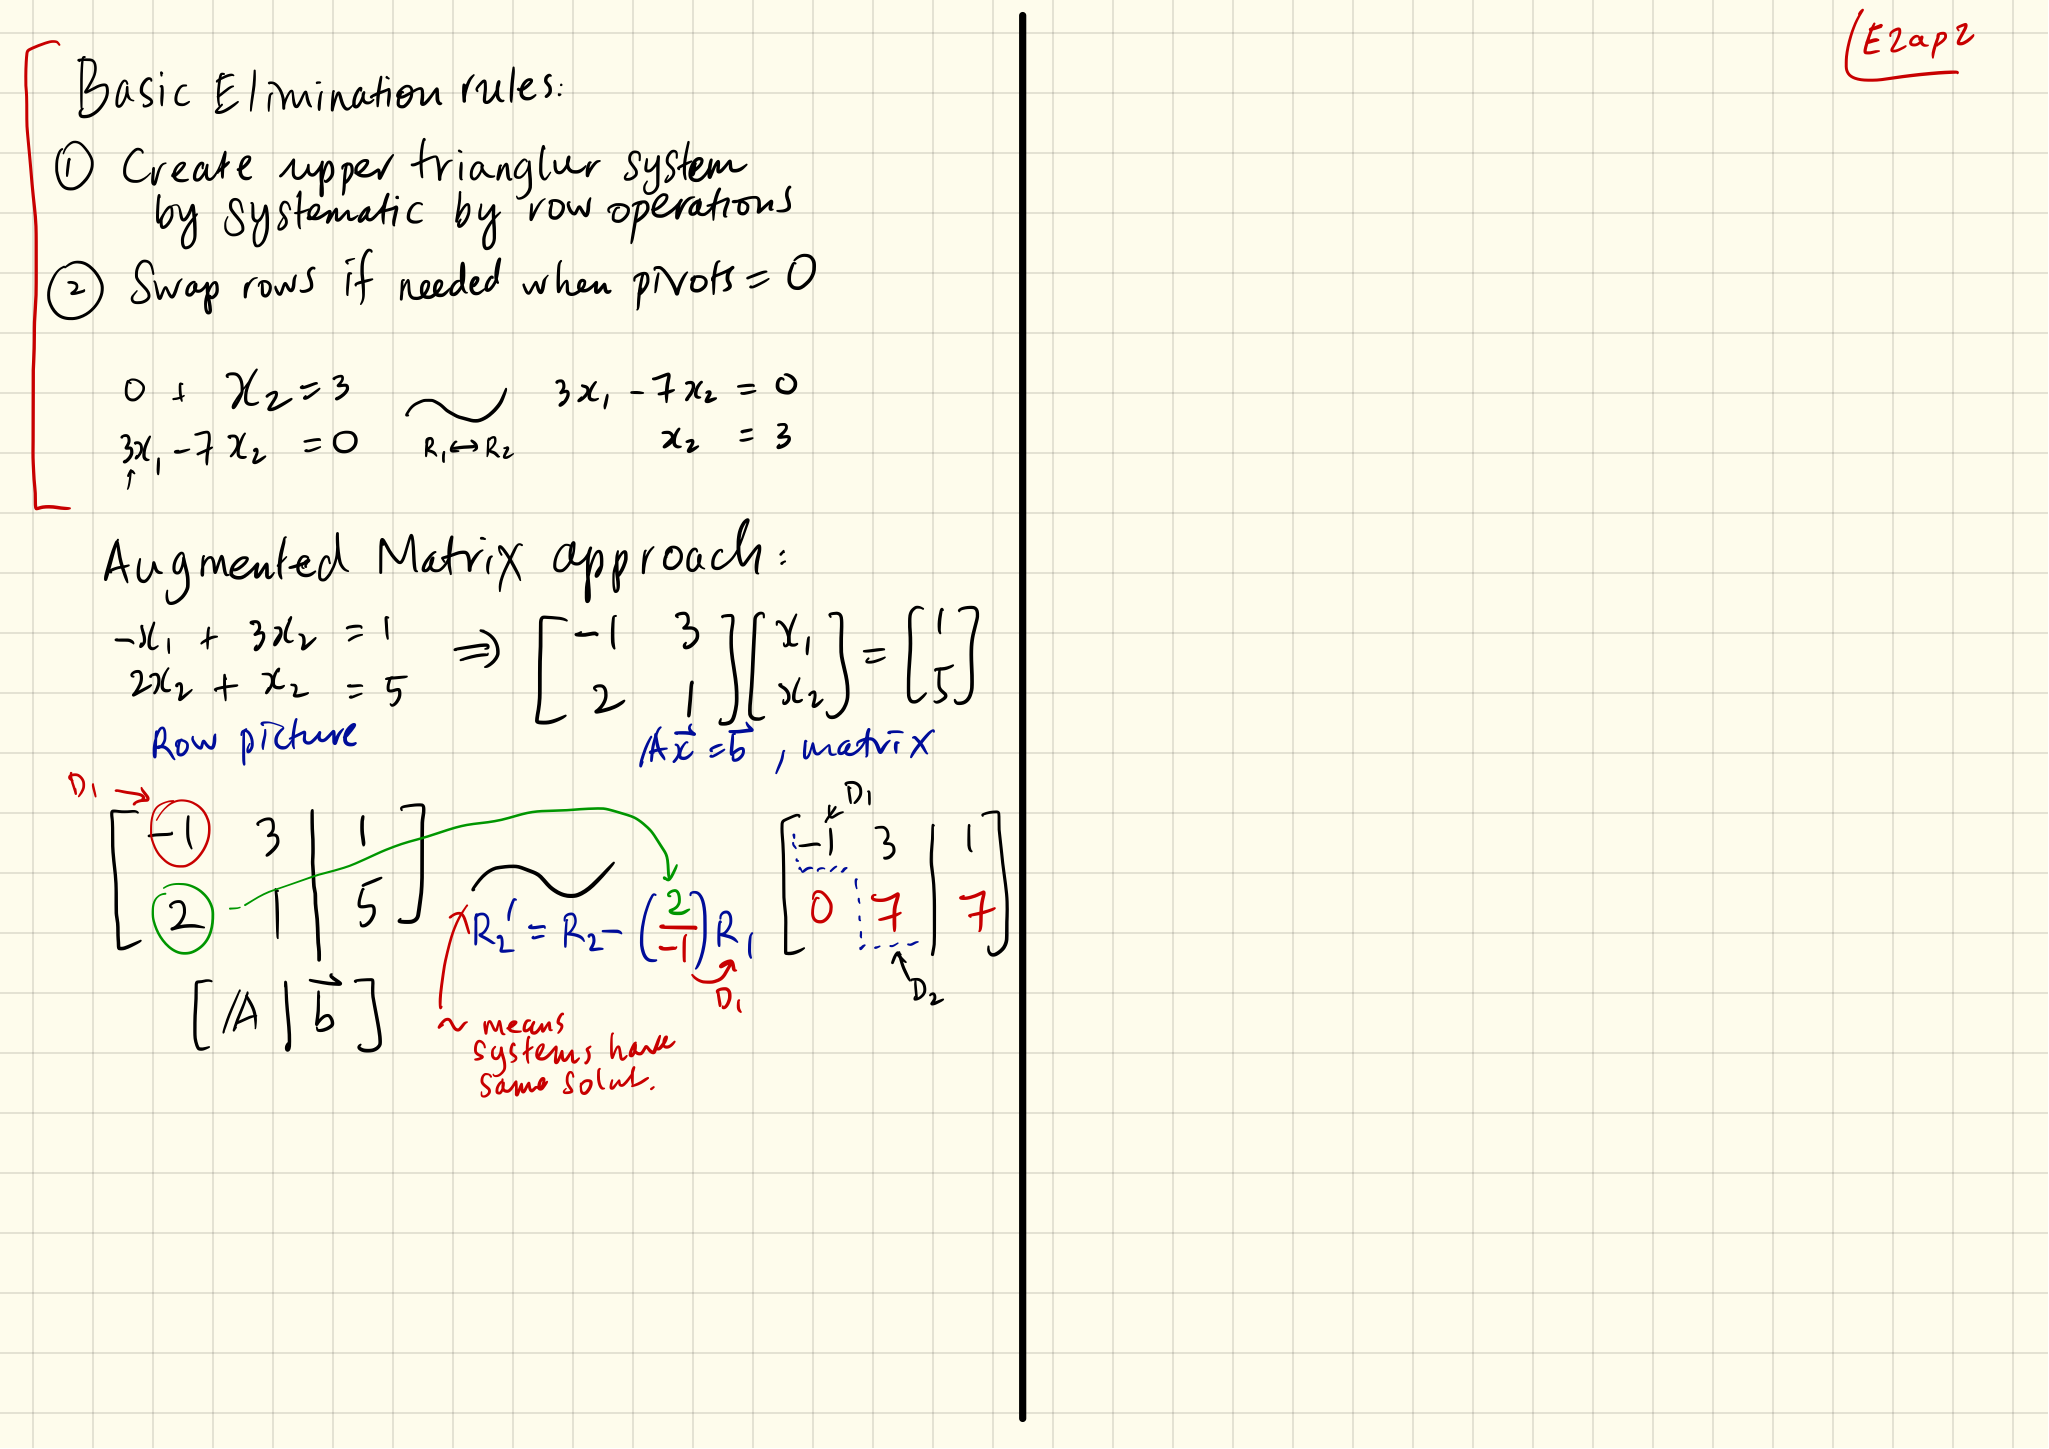 E2ap2
Basic Elimination rules:
① Create upper trianglur system
by systematic by row operations
② Swap rows if needed when pivots = 0
0 + x₂ = 3
3x₁ - 7x₂ = 0
↑
R₁ ↔ R₂
3x₁ - 7x₂ = 0
x₂ = 3
Augmented Matrix approach:
-x₁ + 3x₂ = 1
2x₂ + x₂ = 5
⇒ [-1 3; 2 1] [x₁; x₂] = [1; 5]
Row picture
Ax⃗ = b⃗, matrix
D₁ →
[-1 3 | 1
2 1 | 5]
~
R₂' = R₂ - (2/-1) R₁
D₁
D₁
[-1 3 | 1
0 7 | 7]
D₂
[A | b⃗]
~ means
systems have
same solut.